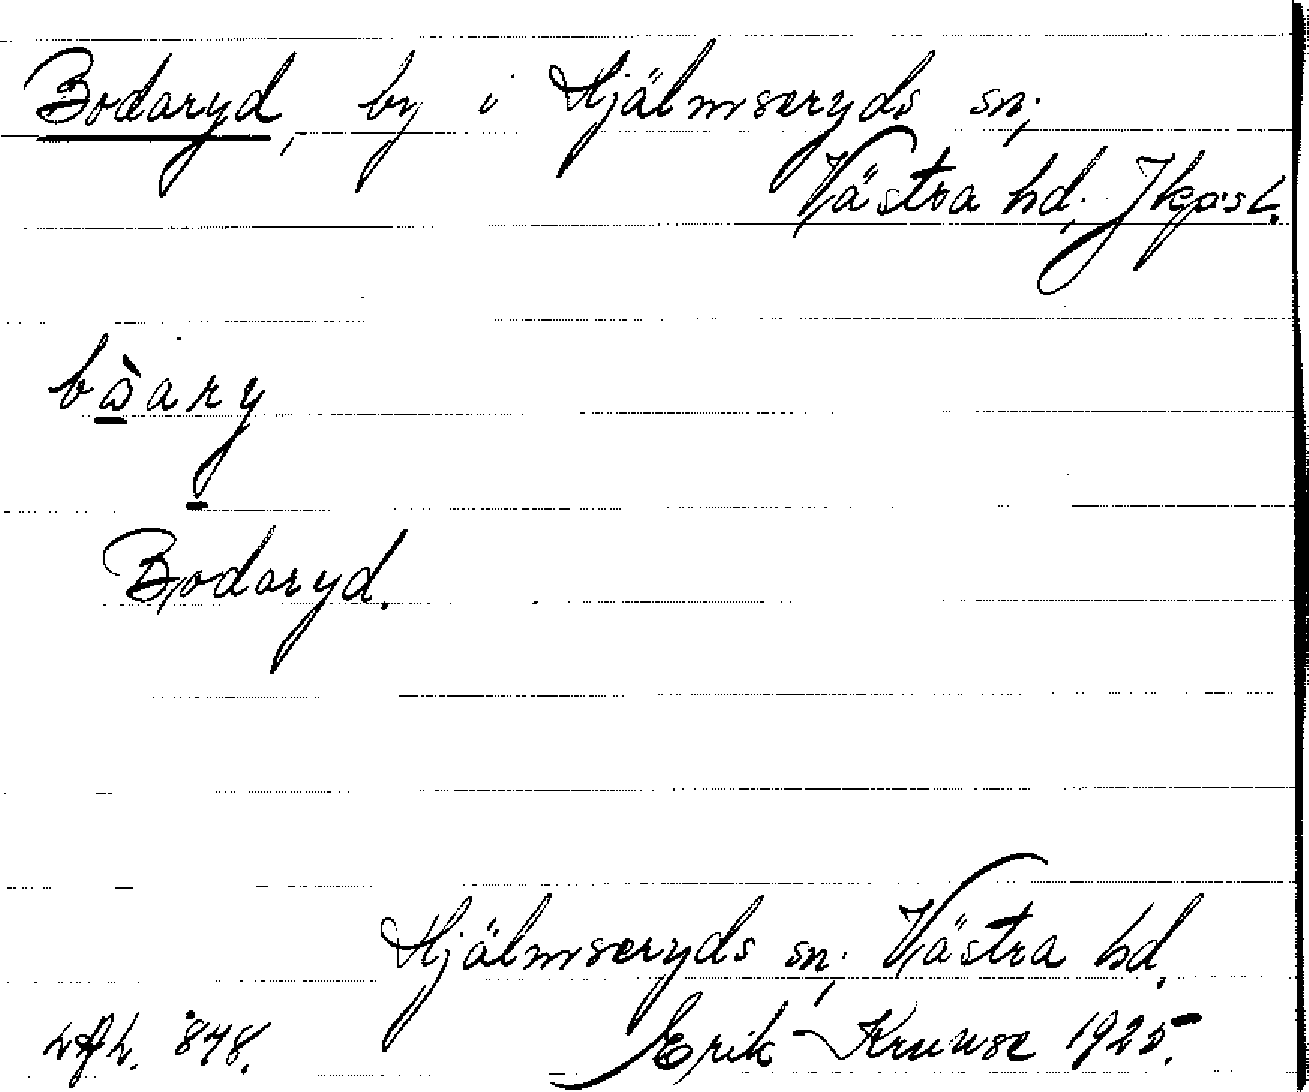 Bodaryd, by i Hjälmseryds sn;
Västra hd; Jkpsl.
bὰary
Bodaryd.
Hjälmseryds sn; Västra hd.
848. Erik Kruuse 1925.